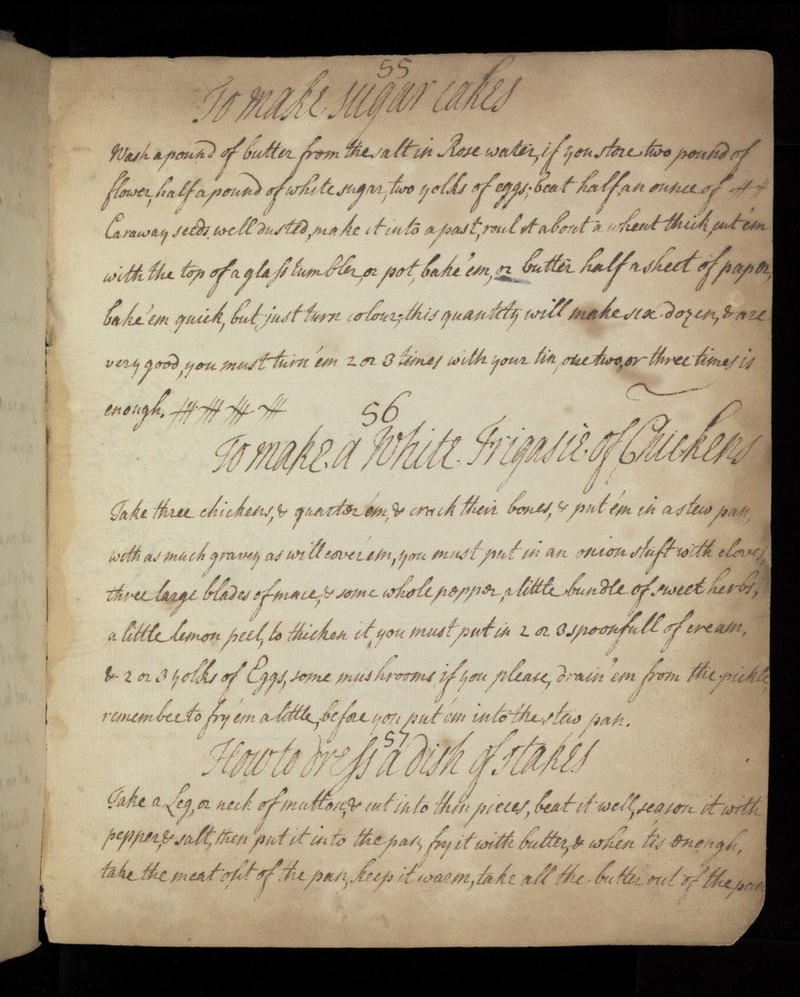 55
To make sugar cakes
Wash a pound of butter from the salt in Rose water, if you store two pound of
flower, half a pound of white sugar, two yolks of eggs, beat half an ounce of
Caraway seeds well dusted, make it into a past, roul it about a wheat thick, cut 'em
with the top of a glass tumbler, or pot, bake 'em, on butter half a sheet of paper,
bake 'em quick, but just turn colour; this quantity will make six dozen, & are
very good, you must turn 'em 2 or 3 times with your tin, one two, or three times is
enough.
56
To make a White Frigasie of Chickens
Take three chickens, & quarter 'em, & crack their bones, & put 'em in a stew pan,
with as much gravey as will cover 'em, you must put in an onion stuft with cloves,
three large blades of mace, & some whole pepper, a little bundle of sweet herbs,
a little lemon peel, to thicken it, you must put in 2 or 3 spoonfull of cream,
& 2 or 3 yolks of Eggs, some mushrooms if you please, drain 'em from the pickle,
remember to fry 'em a little, before you put 'em into the stew pan.
57
How to dress a dish of stakes
Take a Leg, or neck of mutton, & cut into thin pieces, beat it well, season it with
pepper, & salt, then put it into the pan, fry it with butter, & when 'tis enough,
take the meat out of the pan, keep it warm, take all the butter out of the pan